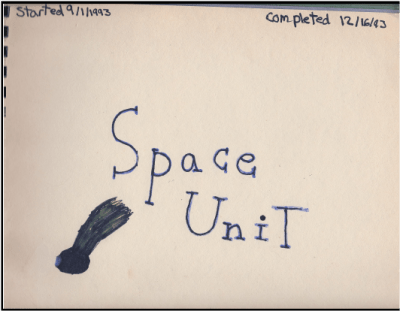 Started 9/1/1993
Completed 12/16/93
Space
Unit